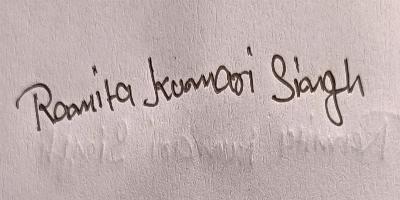 Ramita Kumari Singh